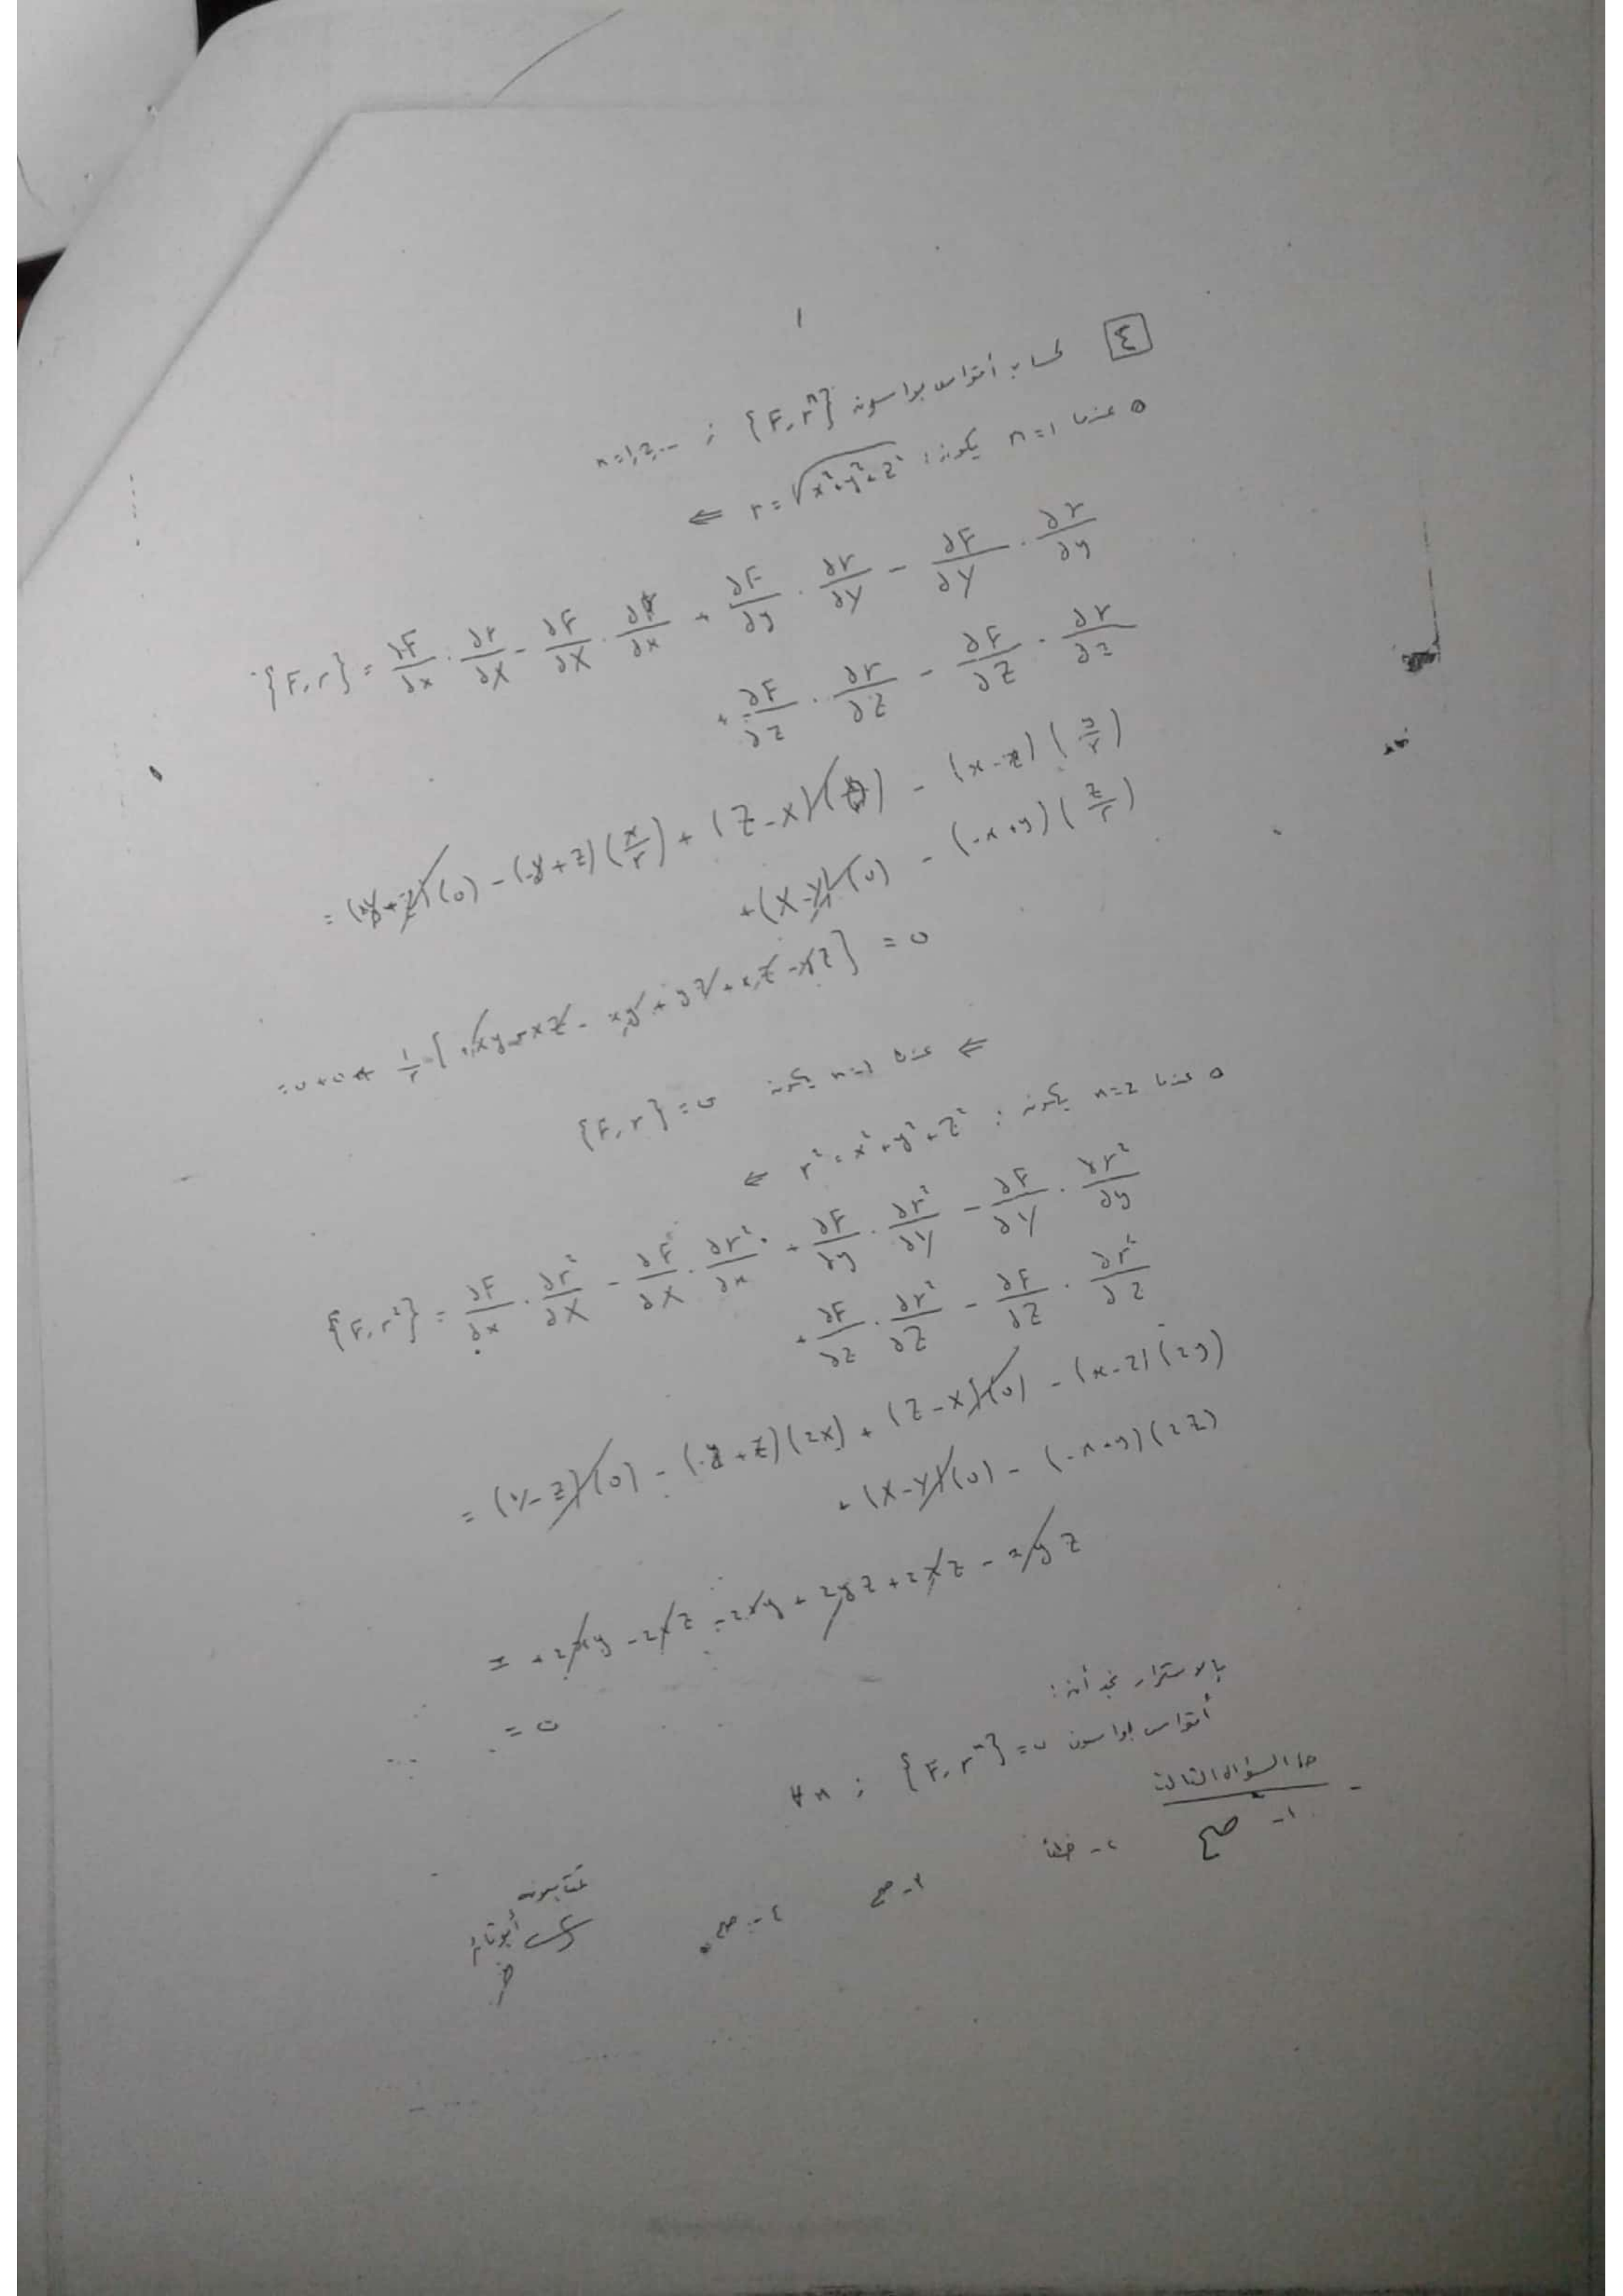 ١
٤ لحساب أقواس بواسون {F, rⁿ} ; n=1,2,...
٥ عندما n=1 يكون: r = √x²+y²+z² ⇐
{F, r} = ∂F/∂x · ∂r/∂X - ∂F/∂X · ∂r/∂x + ∂F/∂y · ∂r/∂Y - ∂F/∂Y · ∂r/∂y
+ ∂F/∂z · ∂r/∂Z - ∂F/∂Z · ∂r/∂z
(0) - (-y+z)(x/r) + (Z-X)(0) - (x-z)(y/r)
+(X-Y)(0) - (-x+y)(z/r)
= 0+0+ 1/r [xy-xz - xy + yz + xz - yz] = 0
⇐ عندما n=1 يكون {F, r} = 0
٥ عندما n=2 يكون: r² = x²+y²+z² ⇐
{F, r²} = ∂F/∂x · ∂r²/∂X - ∂F/∂X · ∂r²/∂x + ∂F/∂y · ∂r²/∂Y - ∂F/∂Y · ∂r²/∂y
+ ∂F/∂z · ∂r²/∂Z - ∂F/∂Z · ∂r²/∂z
= (Y-Z)(0) - (-y+z)(2x) + (Z-X)(0) - (x-z)(2y)
+ (X-Y)(0) - (-x+y)(2z)
= +2xy - 2xz - 2xy + 2yz + 2xz - 2yz
= 0
نجد أن:
أقواس بواسون {F, rⁿ} = 0 ; ∀n
حل السؤال الثالث
١- صح ٢- خطأ ٣- صح ٤- صح